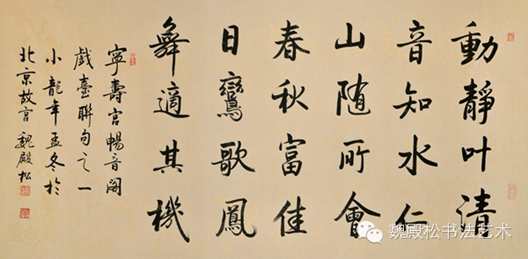 動靜叶清
音知水仁
山随所會
春秋富佳
日鸞歌鳳
舞適其機
寧壽宫暢音阁
戲臺聯句之一
小龍年孟冬於
北京故宫 魏殿松
魏殿松书法艺术